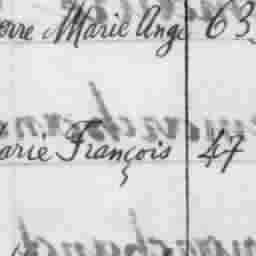 erre Marie Ange 63
arie François 47